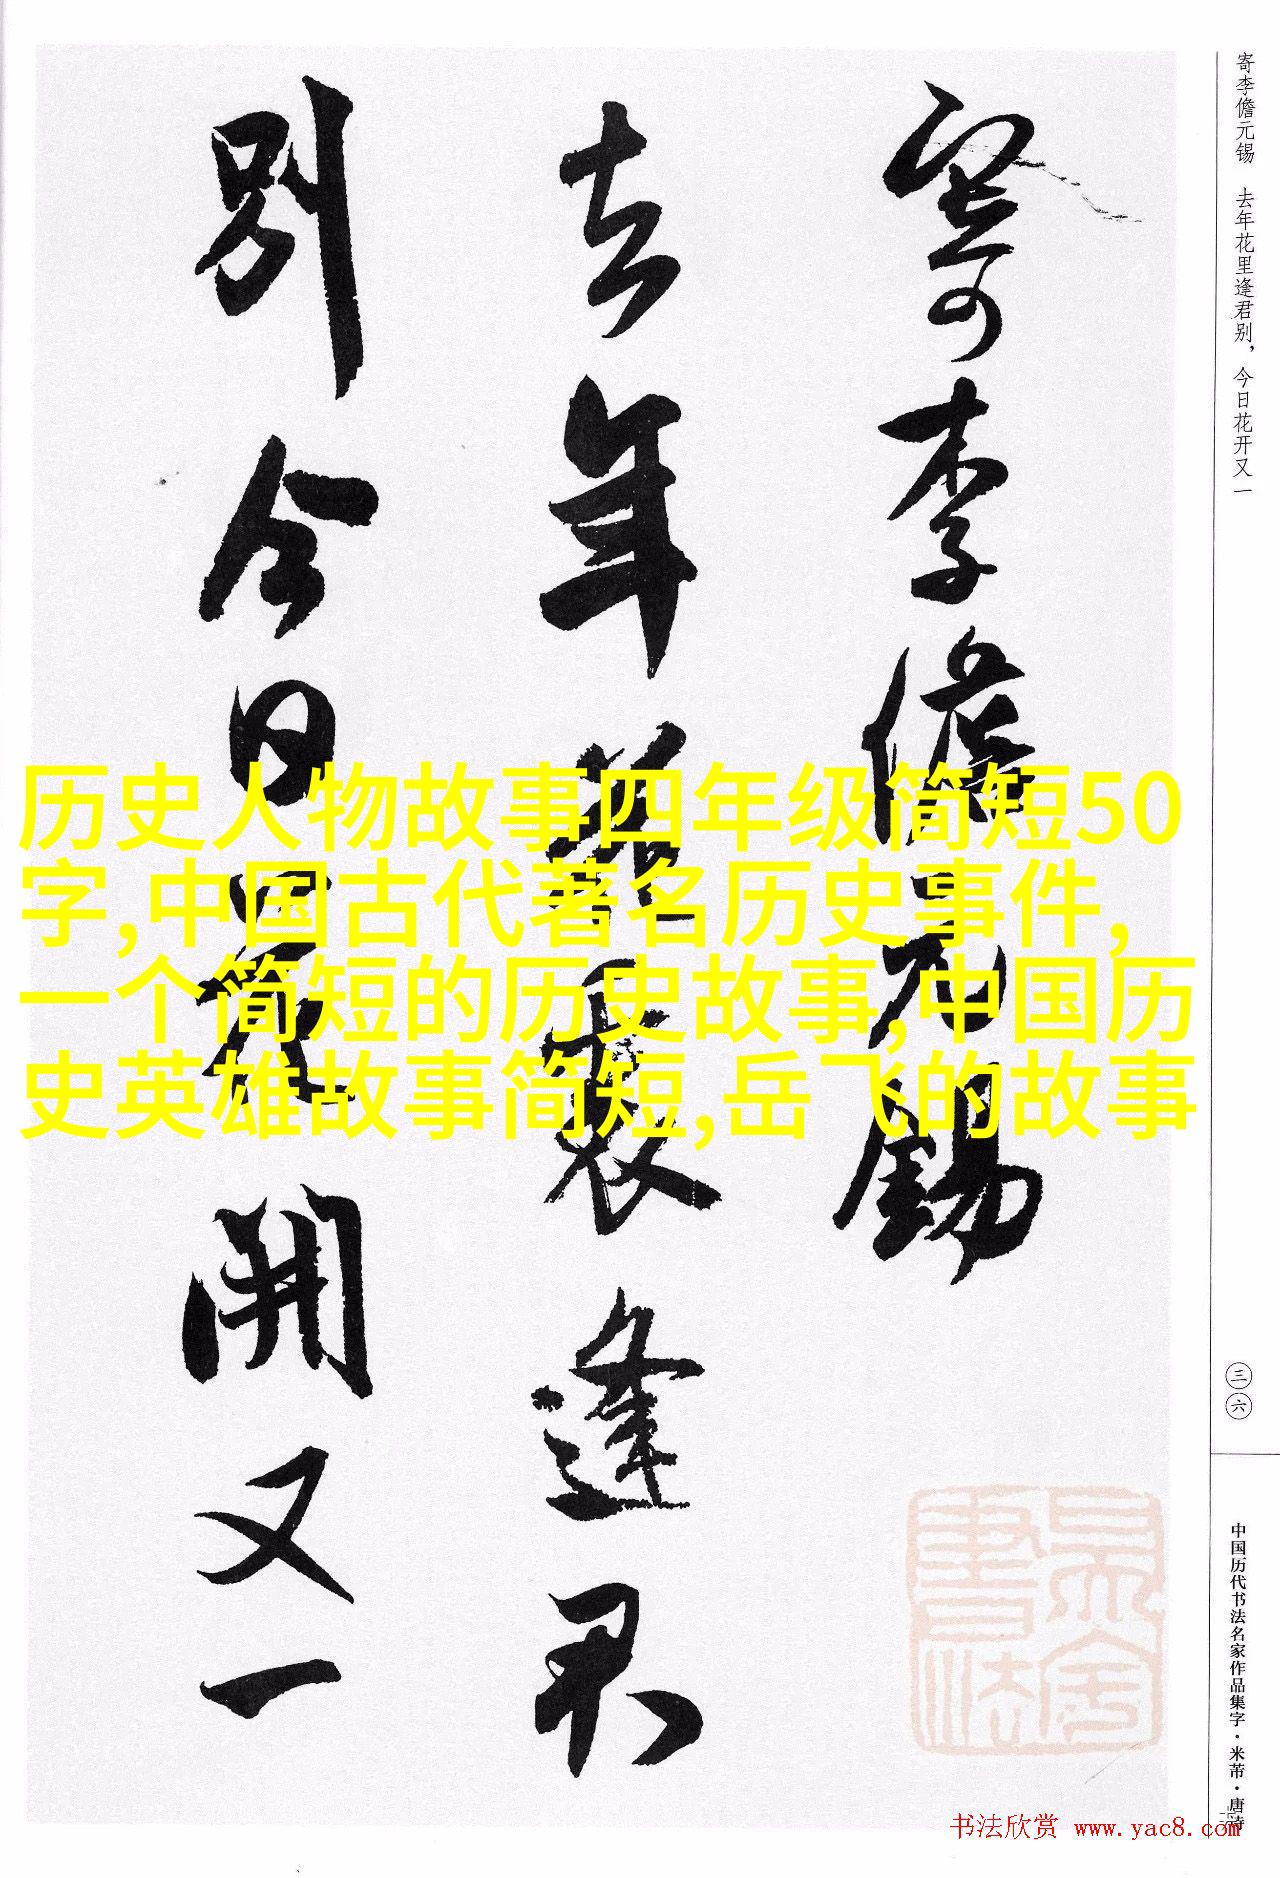 寄李儋元锡 去年花里逢君别，今日花开又一
寄李儋元錫
去年花裏逢君
別今日花開又一
历史人物故事四年级简短50
字,中国古代著名历史事件,
一个简短的历史故事,中国历
史英雄故事简短,岳飞的故事
三六
中国历代书法名家作品集字·米芾·唐诗
书法欣赏 www.yac8.com